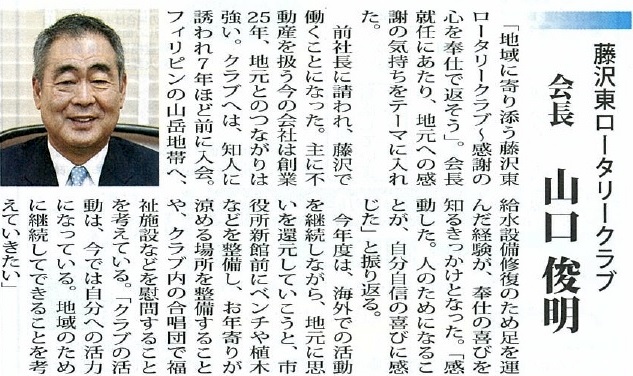 藤沢東ロータリークラブ
会長 山口 俊明
「地域に寄り添う藤沢東
ロータリークラブ〜感謝の
心を奉仕で返そう」。会長
就任にあたり、地元への感
謝の気持ちをテーマに入れ
た。
　前社長に請われ、藤沢で
働くことになった。主に不
動産を扱う今の会社は創業
25年、地元とのつながりは
強い。クラブへは、知人に
誘われ7年ほど前に入会。
フィリピンの山岳地帯へ、
給水設備修復のため足を運
んだ経験が、奉仕の喜びを
知るきっかけとなった。「感
動した。人のためになるこ
とが、自分自信の喜びに感
じた」と振り返る。
　今年度は、海外での活動
を継続しながら、地元に思
いを還元していこうと、市
役所新館前にベンチや植木
などを整備し、お年寄りが
涼める場所を整備すること
や、クラブ内の合唱団で福
祉施設などを慰問すること
を考えている。「クラブの活
動は、今では自分への活力
になっている。地域のため
に継続してできることを考
えていきたい」